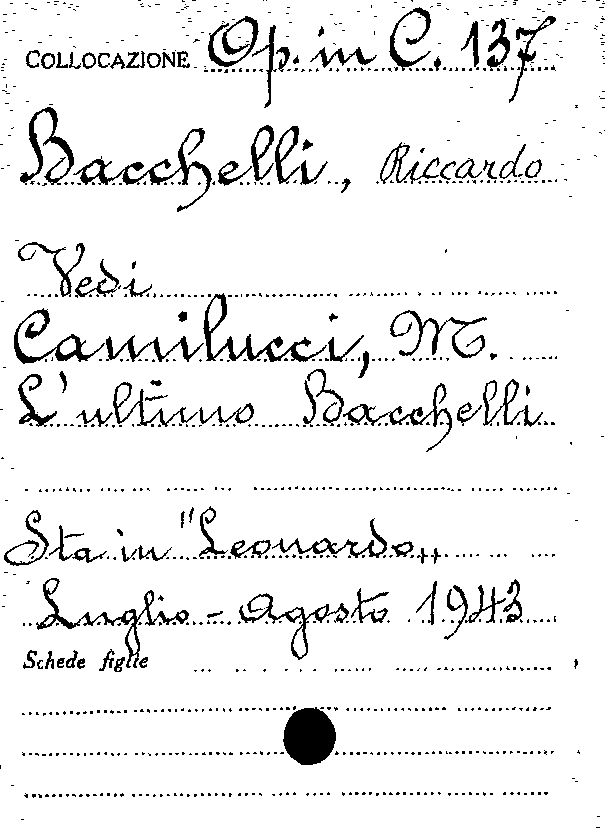 COLLOCAZIONE Op. in C. 137
Bacchelli, Riccardo
Vedi
Camilucci, M.
L'ultimo Bacchelli
Sta in "Leonardo„
Luglio - Agosto 1943
Schede figlie